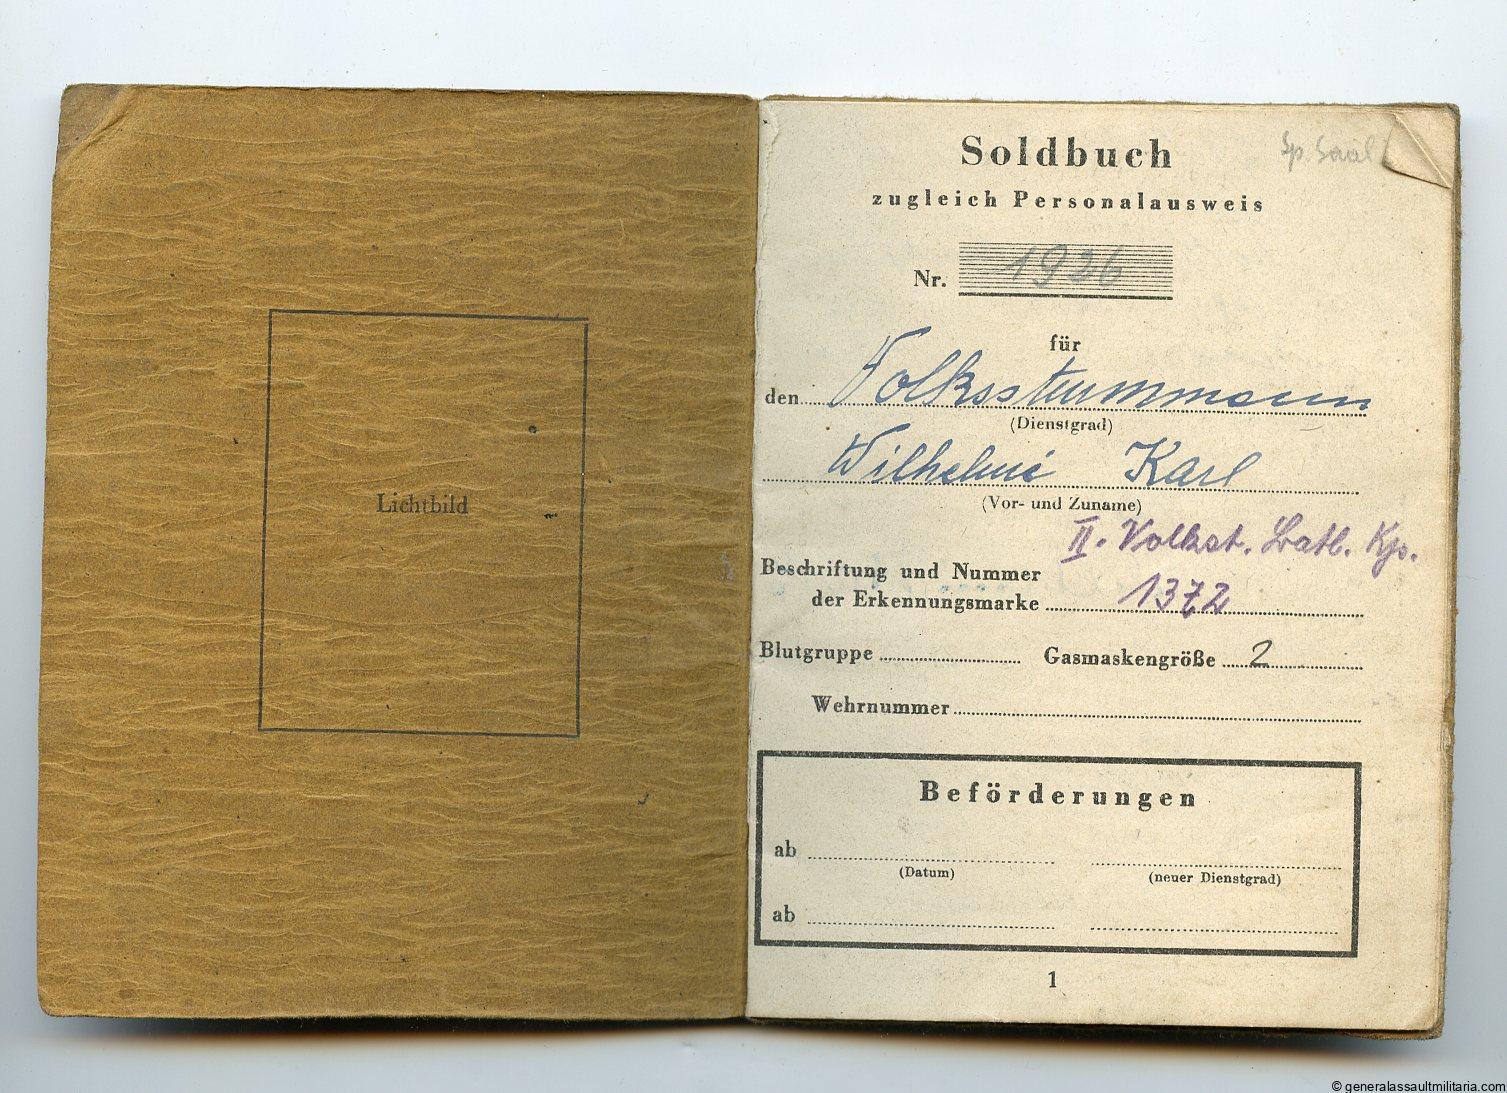 Lichtbild
Soldbuch
zugleich Personalausweis
Nr. 1926
für
den Volkssturmmann
(Dienstgrad)
Wilhelmi Karl
(Vor- und Zuname)
II. Volkst. Batl. Kp.
Beschriftung und Nummer
der Erkennungsmarke 1372
Blutgruppe Gasmaskengröße 2
Wehrnummer
Beförderungen
ab
(Datum) (neuer Dienstgrad)
ab
1
© generalassaultmilitaria.com